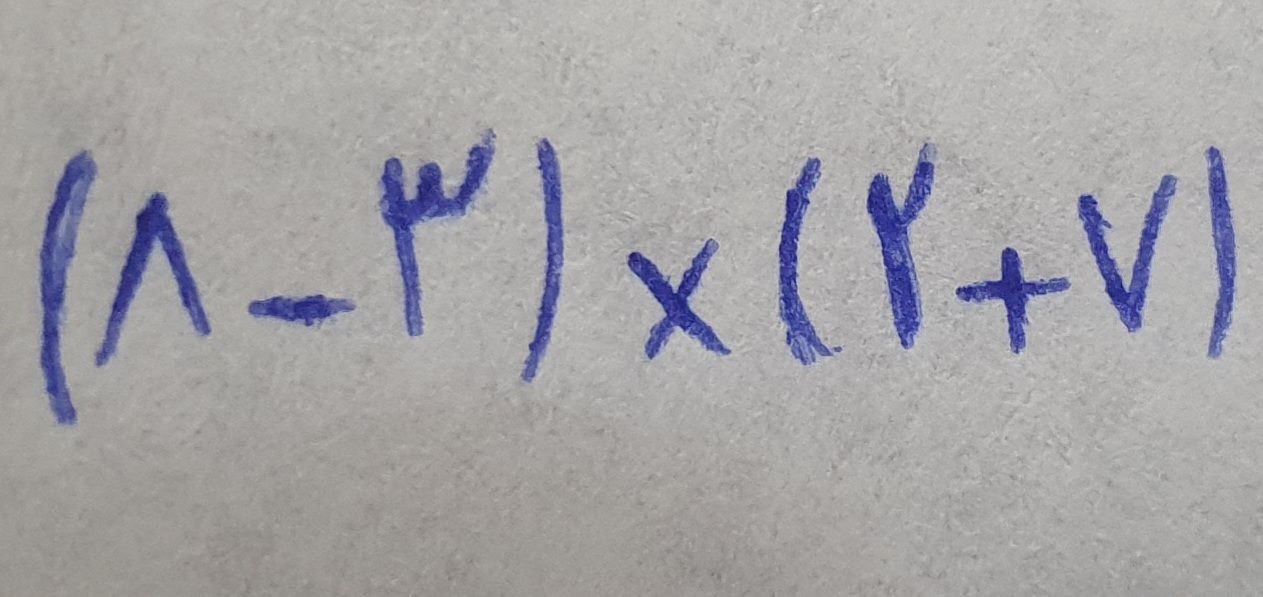 (۸-۳)×(۲+۷)